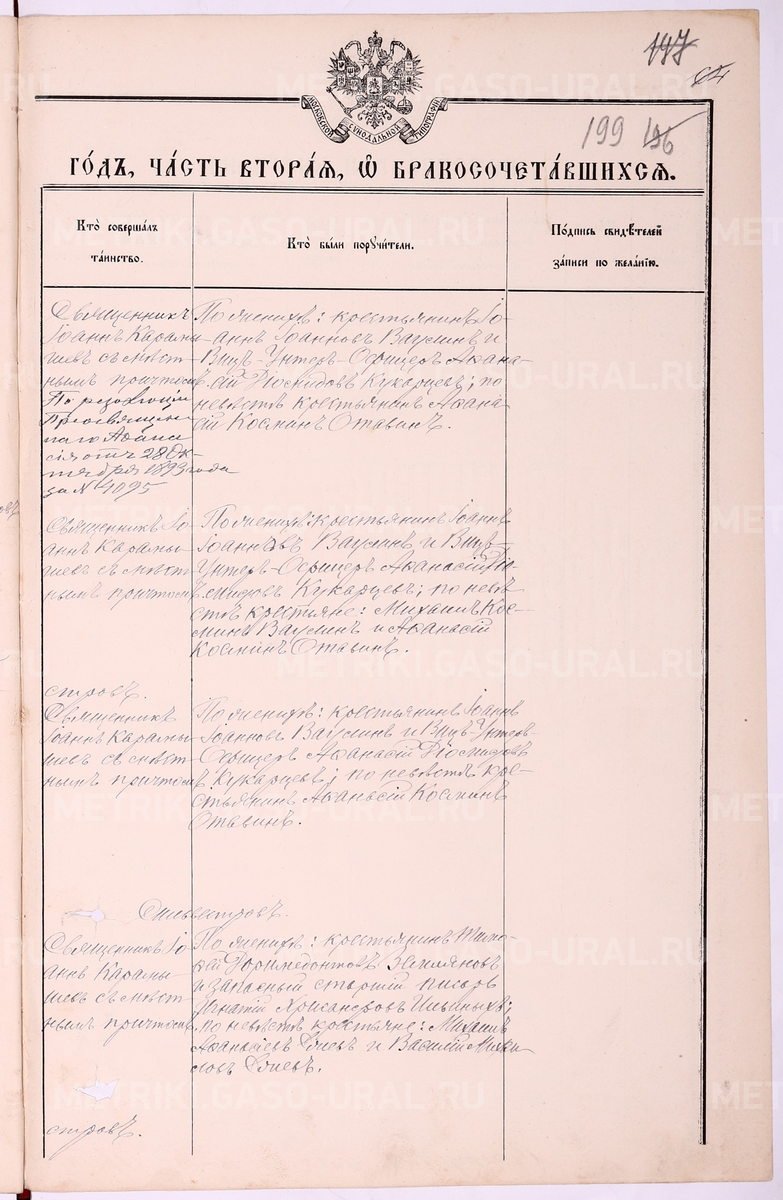 147
199 196
МОСКОВСКОЙ СѴНОДАЛЬНОЙ ТИПОГРАФІИ
ГО́ДЪ, ЧА́СТЬ ВТОРА́Я, Ѡ҆ БРАКОСОЧЕТА́ВШИХСЯ.
Кто̀ совершалъ
та́инство.
Кто̀ бы́ли порꙋчи́тели.
По́дпись свидѣ́телей
за́писи по жела́нію.
Священникъ
Іоаннъ Карамы-
шевъ съ мѣст-
нымъ причтомъ
По резолюціи
Преосвящен-
наго Аѳана-
сія отъ 28 Ок-
тября 1893 года
за № 4095
По женихѣ: крестьянинъ Іо-
аннъ Іоанновъ Ваулинъ и
Вицъ-Унтеръ-Офицеръ Аѳана-
сій Діомидовъ Кукарцевъ; по
невѣстѣ крестьянинъ Аѳана-
сій Косминъ Отавинъ.
Священникъ Іо-
аннъ Карамы-
шевъ съ мѣст-
нымъ причтомъ
По женихѣ: крестьянинъ Іоаннъ
Іоанновъ Ваулинъ и Вицъ-
Унтеръ-Офицеръ Аѳанасій Діо-
мидовъ Кукарцевъ; по невѣ-
стѣ крестьяне: Михаилъ Кос-
минъ Ваулинъ и Аѳанасій
Косминъ Отавинъ.
стровъ.
Священникъ
Іоаннъ Карамы-
шевъ съ мѣст-
нымъ причтомъ
По женихѣ: крестьянинъ Іоаннъ
Іоанновъ Ваулинъ и Вицъ-Унтеръ-
Офицеръ Аѳанасій Діомидовъ
Кукарцевъ; по невѣстѣ кре-
стьянинъ Аѳанасій Косминъ
Отавинъ.
Сильвестровъ.
Священникъ Іо-
аннъ Карамы-
шевъ съ мѣст-
нымъ причтомъ
По женихѣ: крестьянинъ Тимо-
ѳей Доримедонтовъ Земляновъ
и запасный старшій писарь
Игнатій Хрисанфовъ Ильиныхъ;
по невѣстѣ крестьяне: Михаилъ
Аѳанасіевъ и Василій Михаи-
ловъ
стровъ.
METRIKI.GASO-URAL.RU